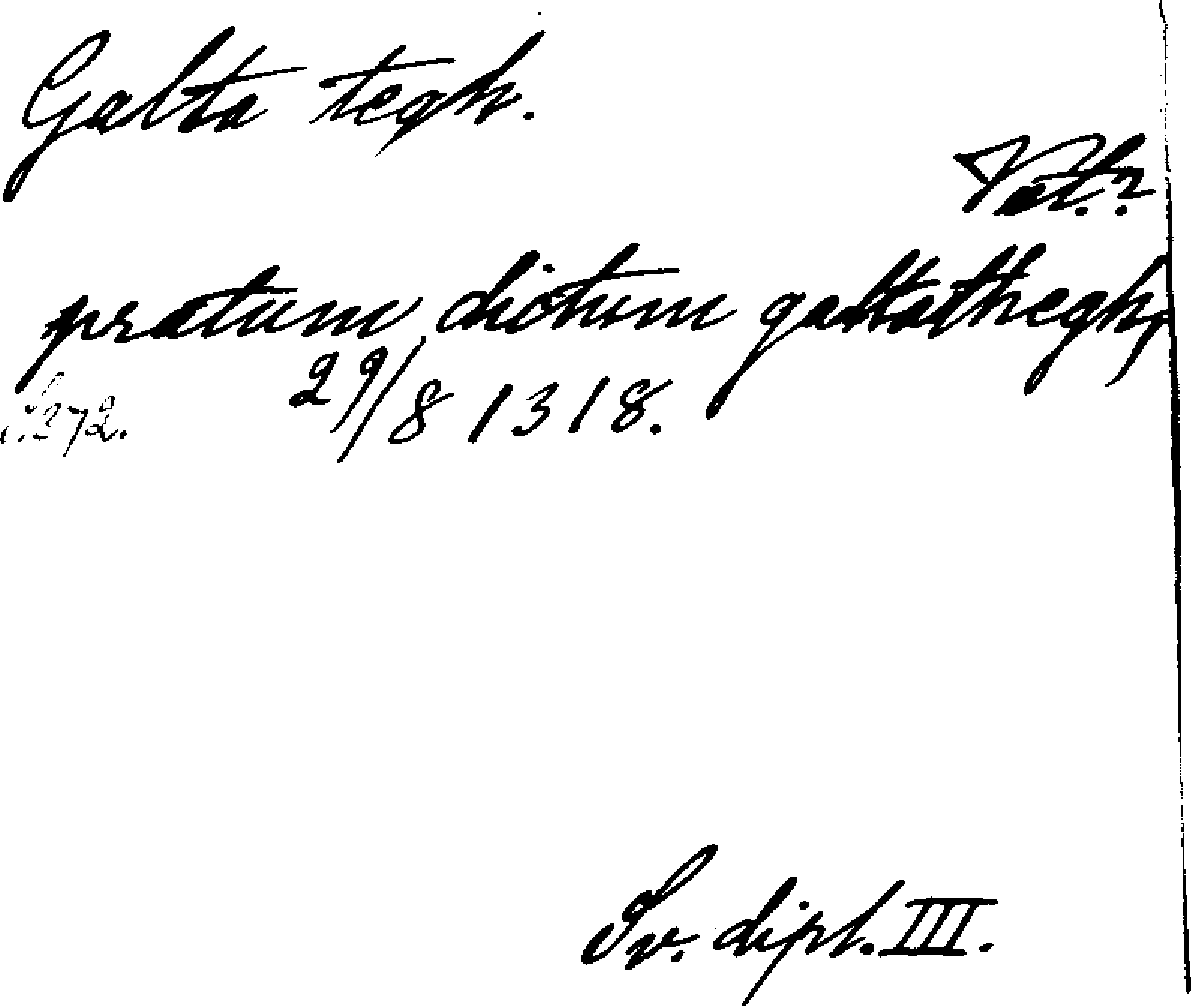 Galta tegh.
Vät.?
pratum dictum galtathegh,
s. 372. 29/8 1318.
Sv. dipl. III.